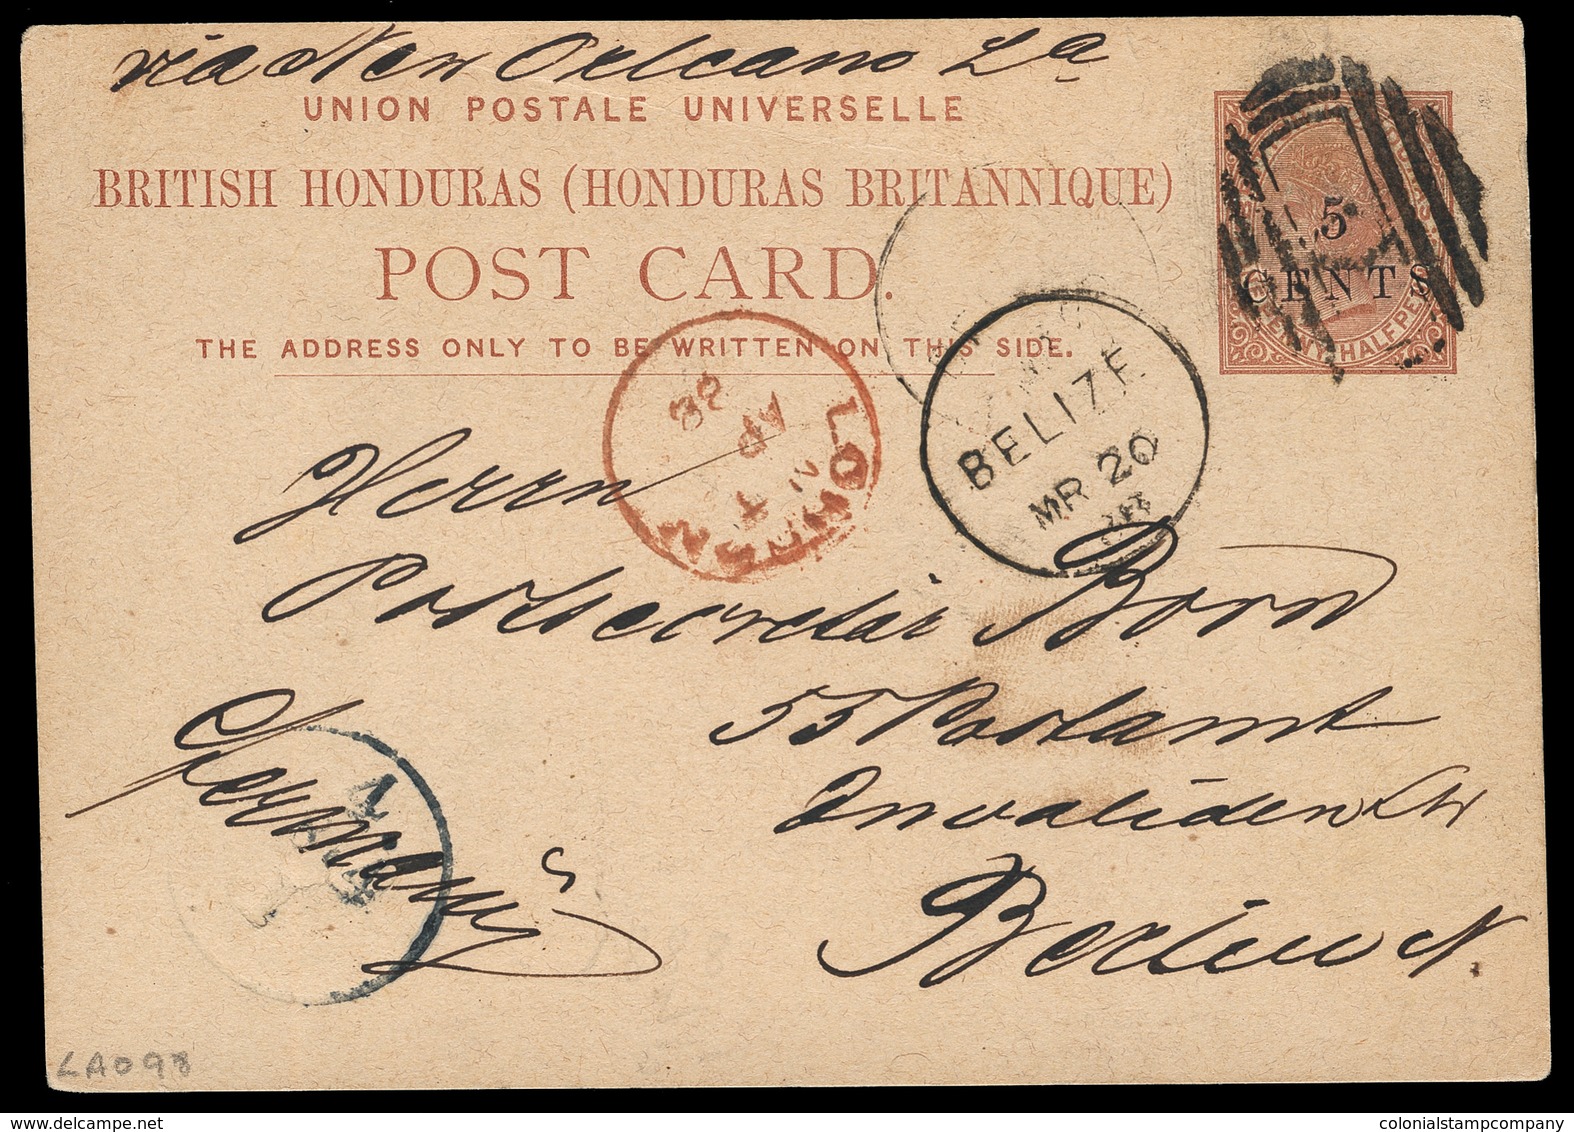 via New Orleans La
UNION POSTALE UNIVERSELLE
BRITISH HONDURAS (HONDURAS BRITANNIQUE)
POST CARD.
THE ADDRESS ONLY TO BE WRITTEN ON THIS SIDE.
5
CENTS
HALFPE
LONDON
AP
88
BELIZE
MR 20
Herrn
Postsecretär Born
55 Postamt
Invaliden Str
Berlin N.
Germany
LA098
colonialstampcompany